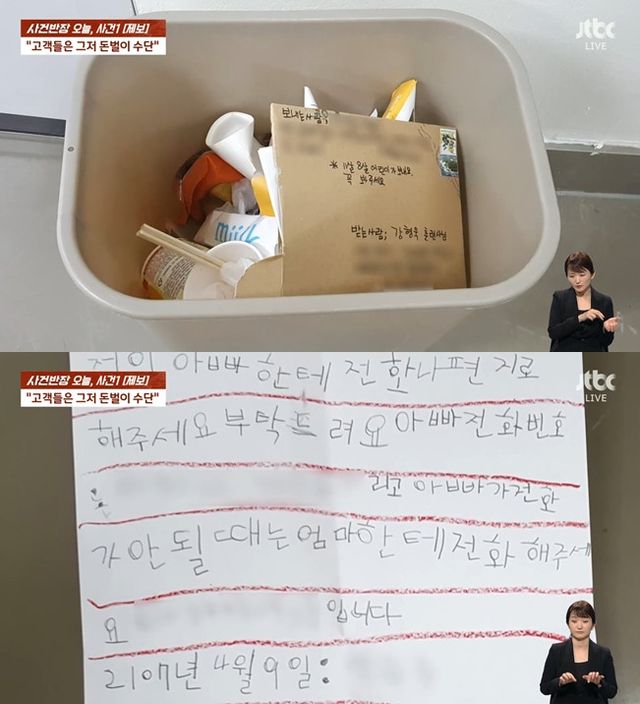 사건반장 오늘, 사건1 [제보]
"고객들은 그저 돈벌이 수단"
jtbc
LIVE
보내는사람
* 11살 8살 어린이가 보내요.
꼭 봐주세요
받는사람; 강형욱 훈련사님
milk
사건반장 오늘, 사건1 [제보]
"고객들은 그저 돈벌이 수단"
jtbc
LIVE
저의 아빠한테 전화나편지로
해주세요 부탁드려요 아빠전화번호
:
리고 아빠가전화
가안될때는엄마한테전화해주세
요
입니다
2107년 4월 9일: